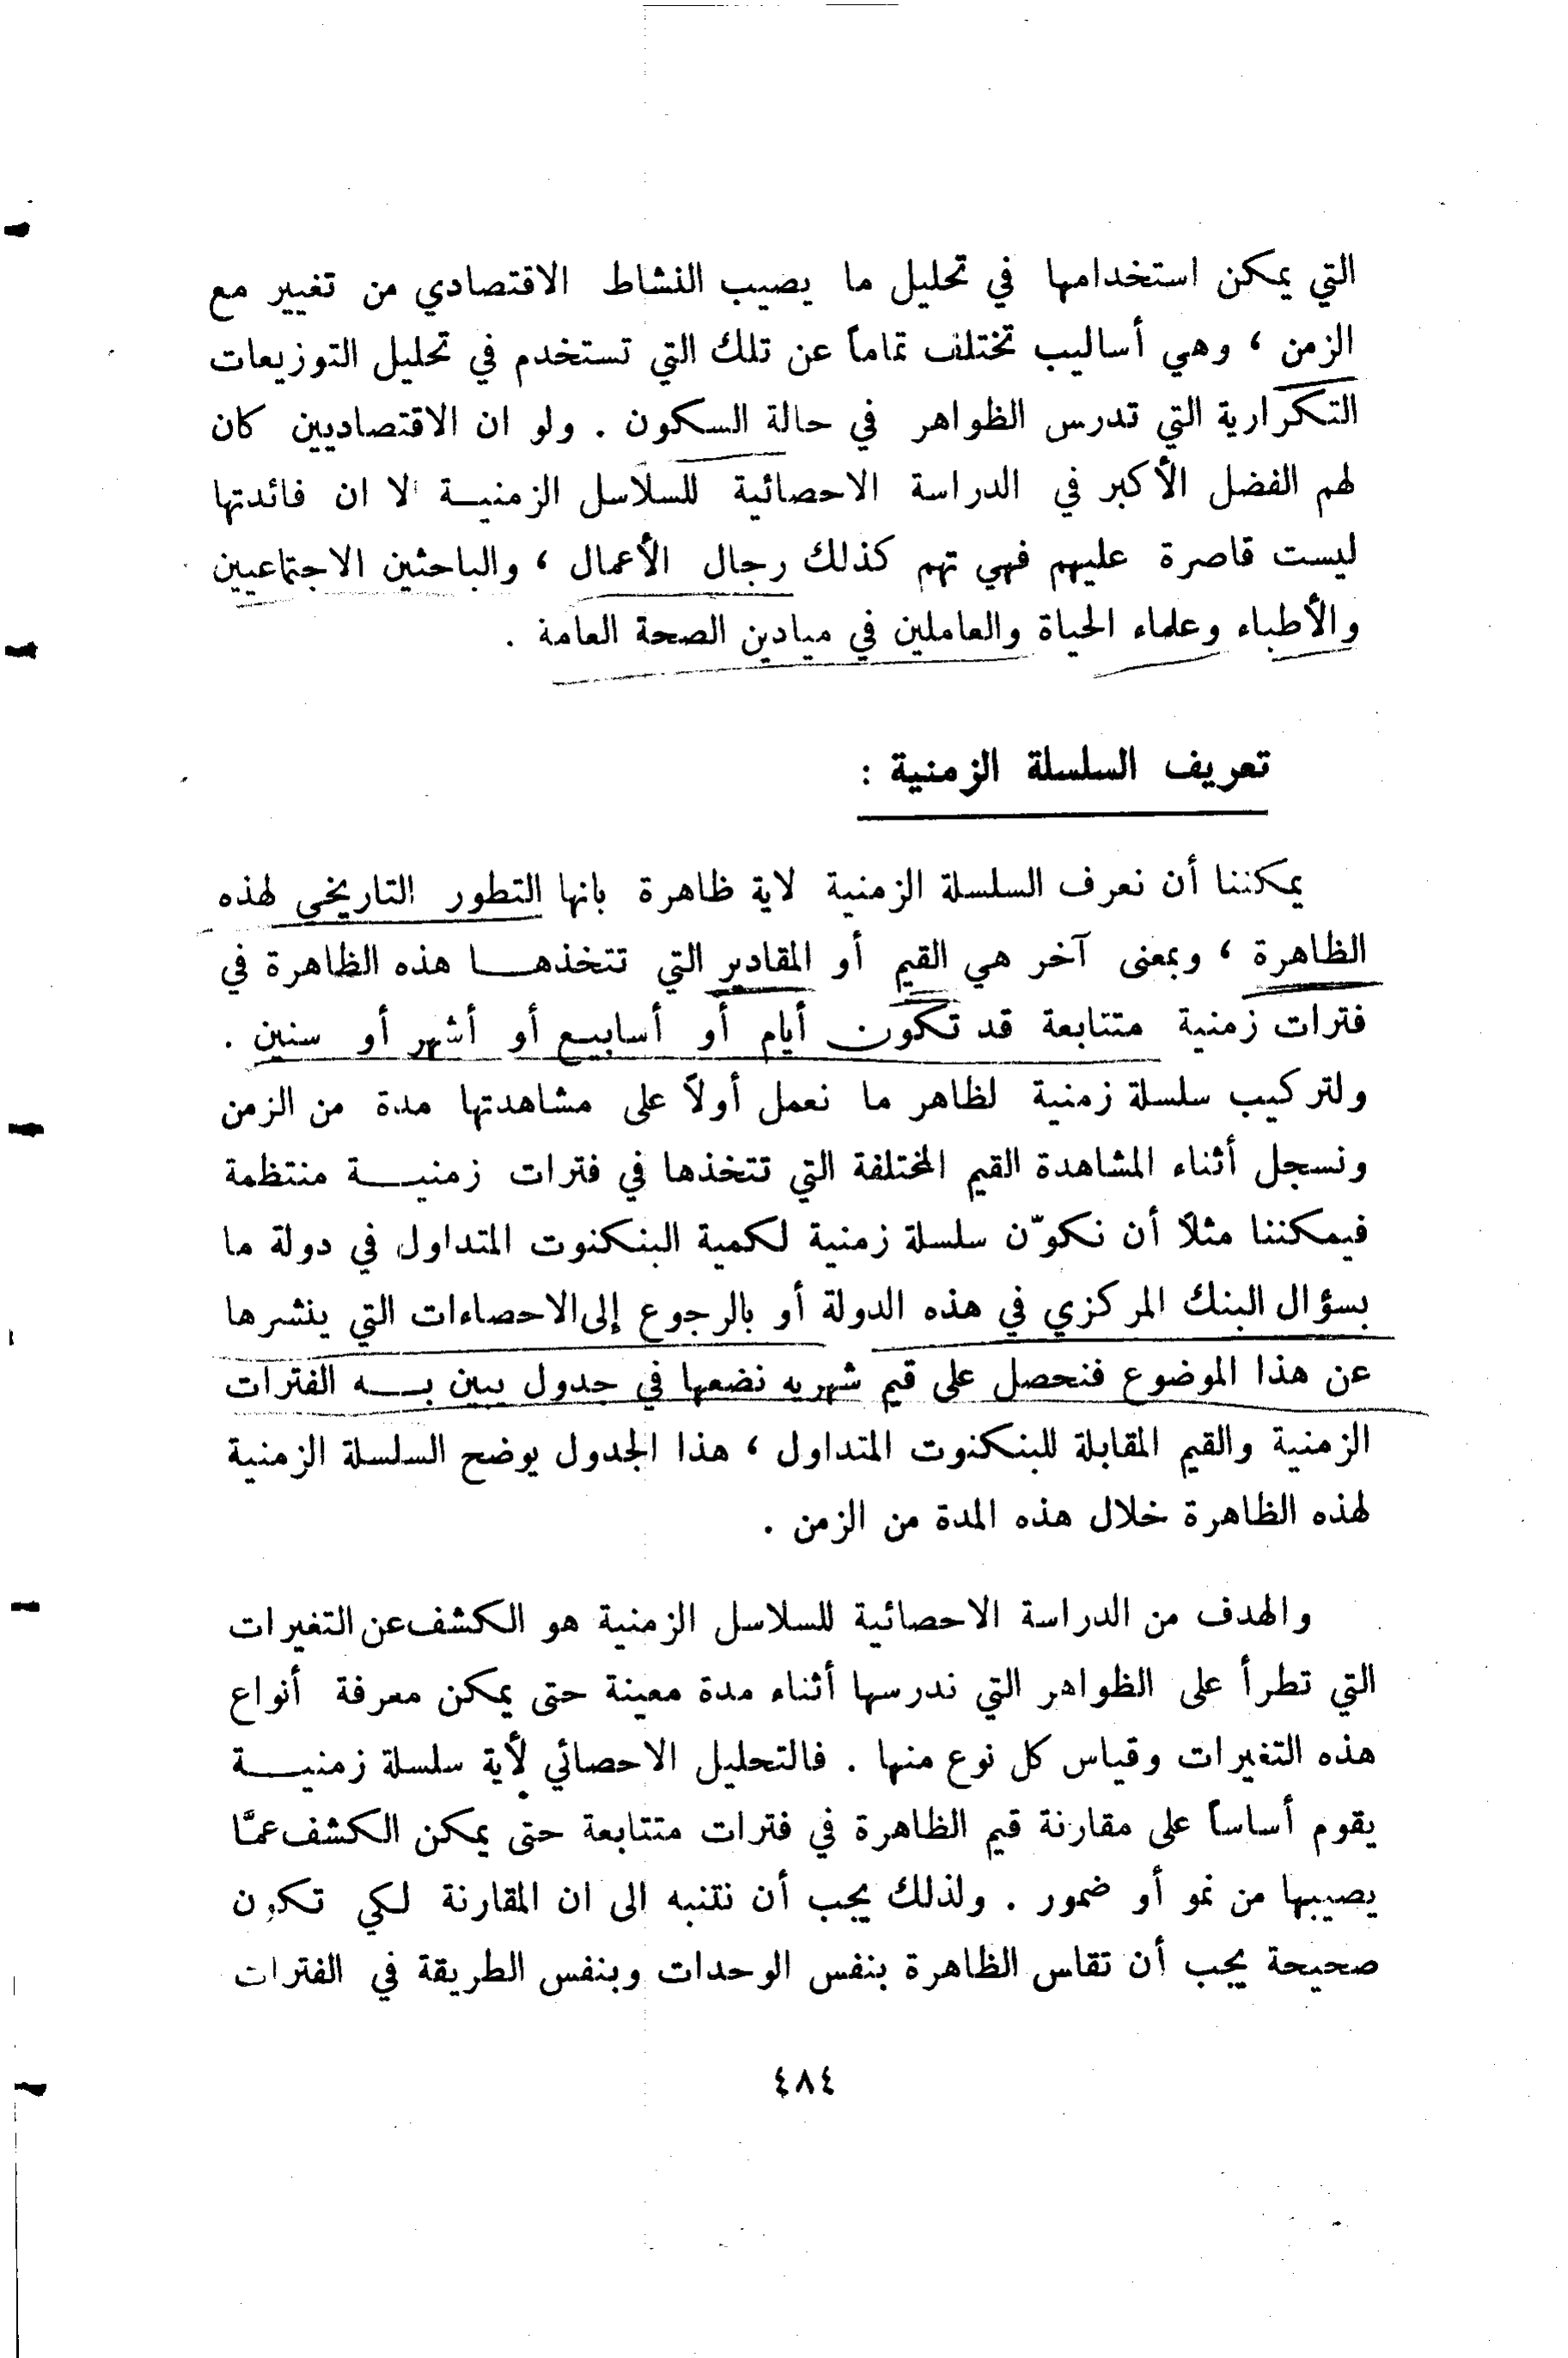 التي يمكن استخدامها في تحليل ما يصيب النشاط الاقتصادي من تغيير مع
الزمن ، وهي أساليب تختلف تماماً عن تلك التي تستخدم في تحليل التوزيعات
التكرارية التي تدرس الظواهر في حالة السكون . ولو ان الاقتصاديين كان
لهم الفضل الأكبر في الدراسة الاحصائية للسلاسل الزمنيـة الا ان فائدتها
ليست قاصرة عليهم فهي تهم كذلك رجال الأعمال ، والباحثين الاجتماعيين
والأطباء وعلماء الحياة والعاملين في ميادين الصحة العامة .
تعريف السلسلة الزمنية :
يمكننا أن نعرف السلسلة الزمنية لاية ظاهرة بانها التطور التاريخي لهذه
الظاهرة ، وبمعنى آخر هي القيم أو المقادير التي تتخذهـا هذه الظاهرة في
فترات زمنية متتابعة قد تكون أيام أو أسابيع أو أشهر أو سنين .
ولتركيب سلسلة زمنية لظاهر ما نعمل أولاً على مشاهدتها مدة من الزمن
ونسجل أثناء المشاهدة القيم المختلفة التي تتخذها في فترات زمنيـة منتظمة
فيمكننا مثلاً أن نكوّن سلسلة زمنية لكمية البنكنوت المتداول في دولة ما
بسؤال البنك المركزي في هذه الدولة أو بالرجوع إلى الاحصاءات التي ينشرها
عن هذا الموضوع فنحصل على قيم شهريه نضعها في جدول يبين بـه الفترات
الزمنية والقيم المقابلة للبنكنوت المتداول ، هذا الجدول يوضح السلسلة الزمنية
لهذه الظاهرة خلال هذه المدة من الزمن .
والهدف من الدراسة الاحصائية للسلاسل الزمنية هو الكشف عن التغيرات
التي تطرأ على الظواهر التي ندرسها أثناء مدة معينة حتى يمكن معرفة أنواع
هذه التغيرات وقياس كل نوع منها . فالتحليل الاحصائي لأية سلسلة زمنيـة
يقوم أساساً على مقارنة قيم الظاهرة في فترات متتابعة حتى يمكن الكشف عمَّا
يصيبها من نمو أو ضمور . ولذلك يجب أن نتنبه الى ان المقارنة لكي تكون
صحيحة يجب أن تقاس الظاهرة بنفس الوحدات وبنفس الطريقة في الفترات
٤٨٤